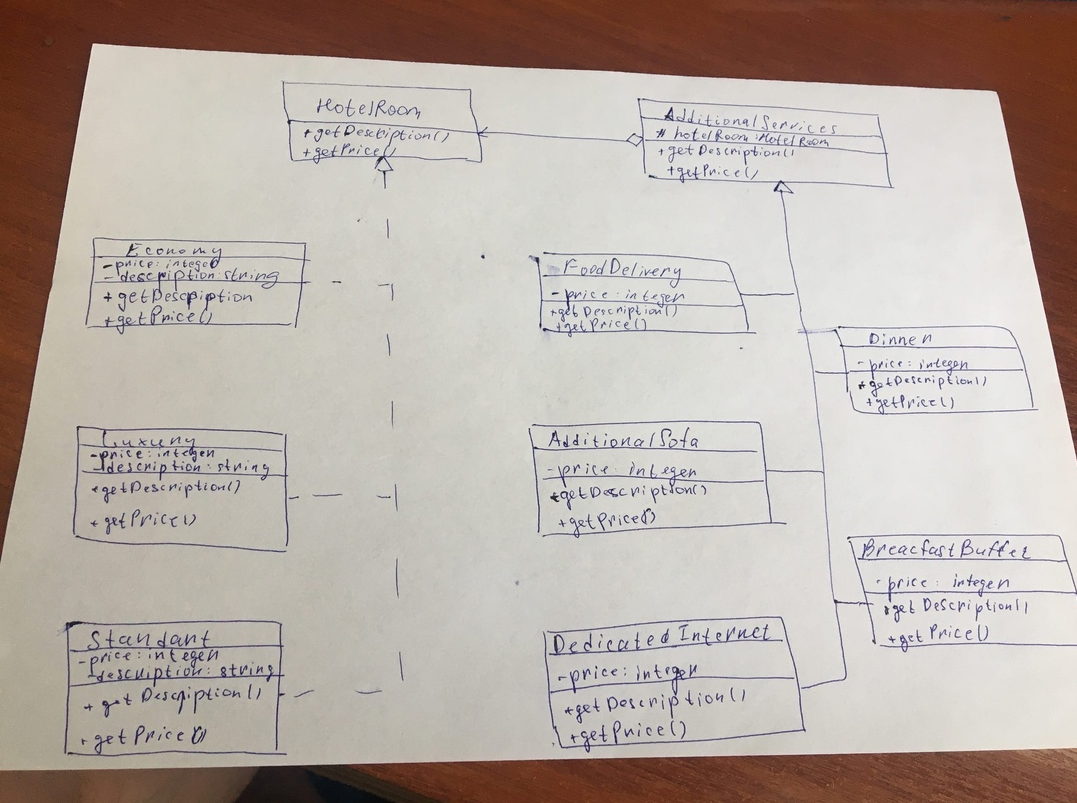 HotelRoom
+getDescription()
+getPrice()
AdditionalServices
# hotelRoom:HotelRoom
+getDescription()
+getPrice()
Economy
-price: integer
-description:string
+getDescpiption
+getPrice()
FoodDelivery
-price: integer
+getDescription()
+getPrice()
Dinner
-price: integer
+getDescription()
+getPrice()
Luxury
-price: integer
-description: string
+getDescription()
+getPrice()
AdditionalSofa
-price: integer
+getDescription()
+getPrice()
BreacfastBuffer
-price: integer
+getDescription()
+getPrice()
Standart
-price: integer
-description: string
+getDescription()
+getPrice()
DedicatedInternet
-price: integer
+getDescription()
+getPrice()